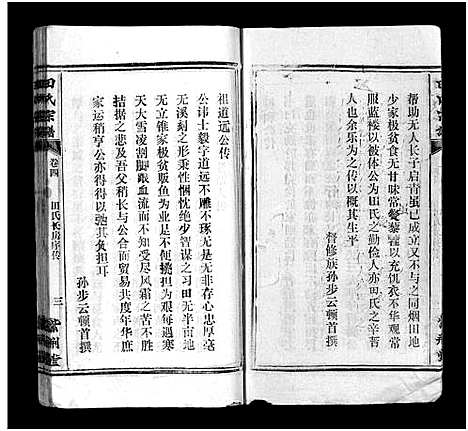 帮助无人长子启青虽已成立又不与之同烟田地
少家极贫食无甘味常餐藜藿以充饥衣不华观常
服蓝楼以被体公为田氏之勤俭人亦田氏之辛苦
人也余乐为之传以概其生平
督修族孙步云顿首撰
祖道远公传
公讳士毅字道远不雕不琢无是无非存心忠厚毫
无溪刻之形秉性悃忱绝少智谋之习田无半亩地
无立锥家极贫贩鱼为业足不是便挑担为裹每遇
天大雪凌割脚眼血流而不知受尽风霜之苦不胜
拮据之悲及吾父稍长与公合而贸易共度年华庶
家运稍亨公亦得得以弛其负担耳
孙步云顿首撰
田氏宗谱
卷四
田氏长房序传
三
紫荆堂